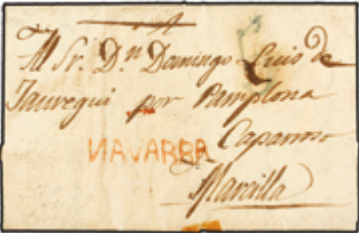 Al Sr. Dn. Domingo Luis de
Jauregui por Pamplona
Caparroso
NAVARRA
Marcilla